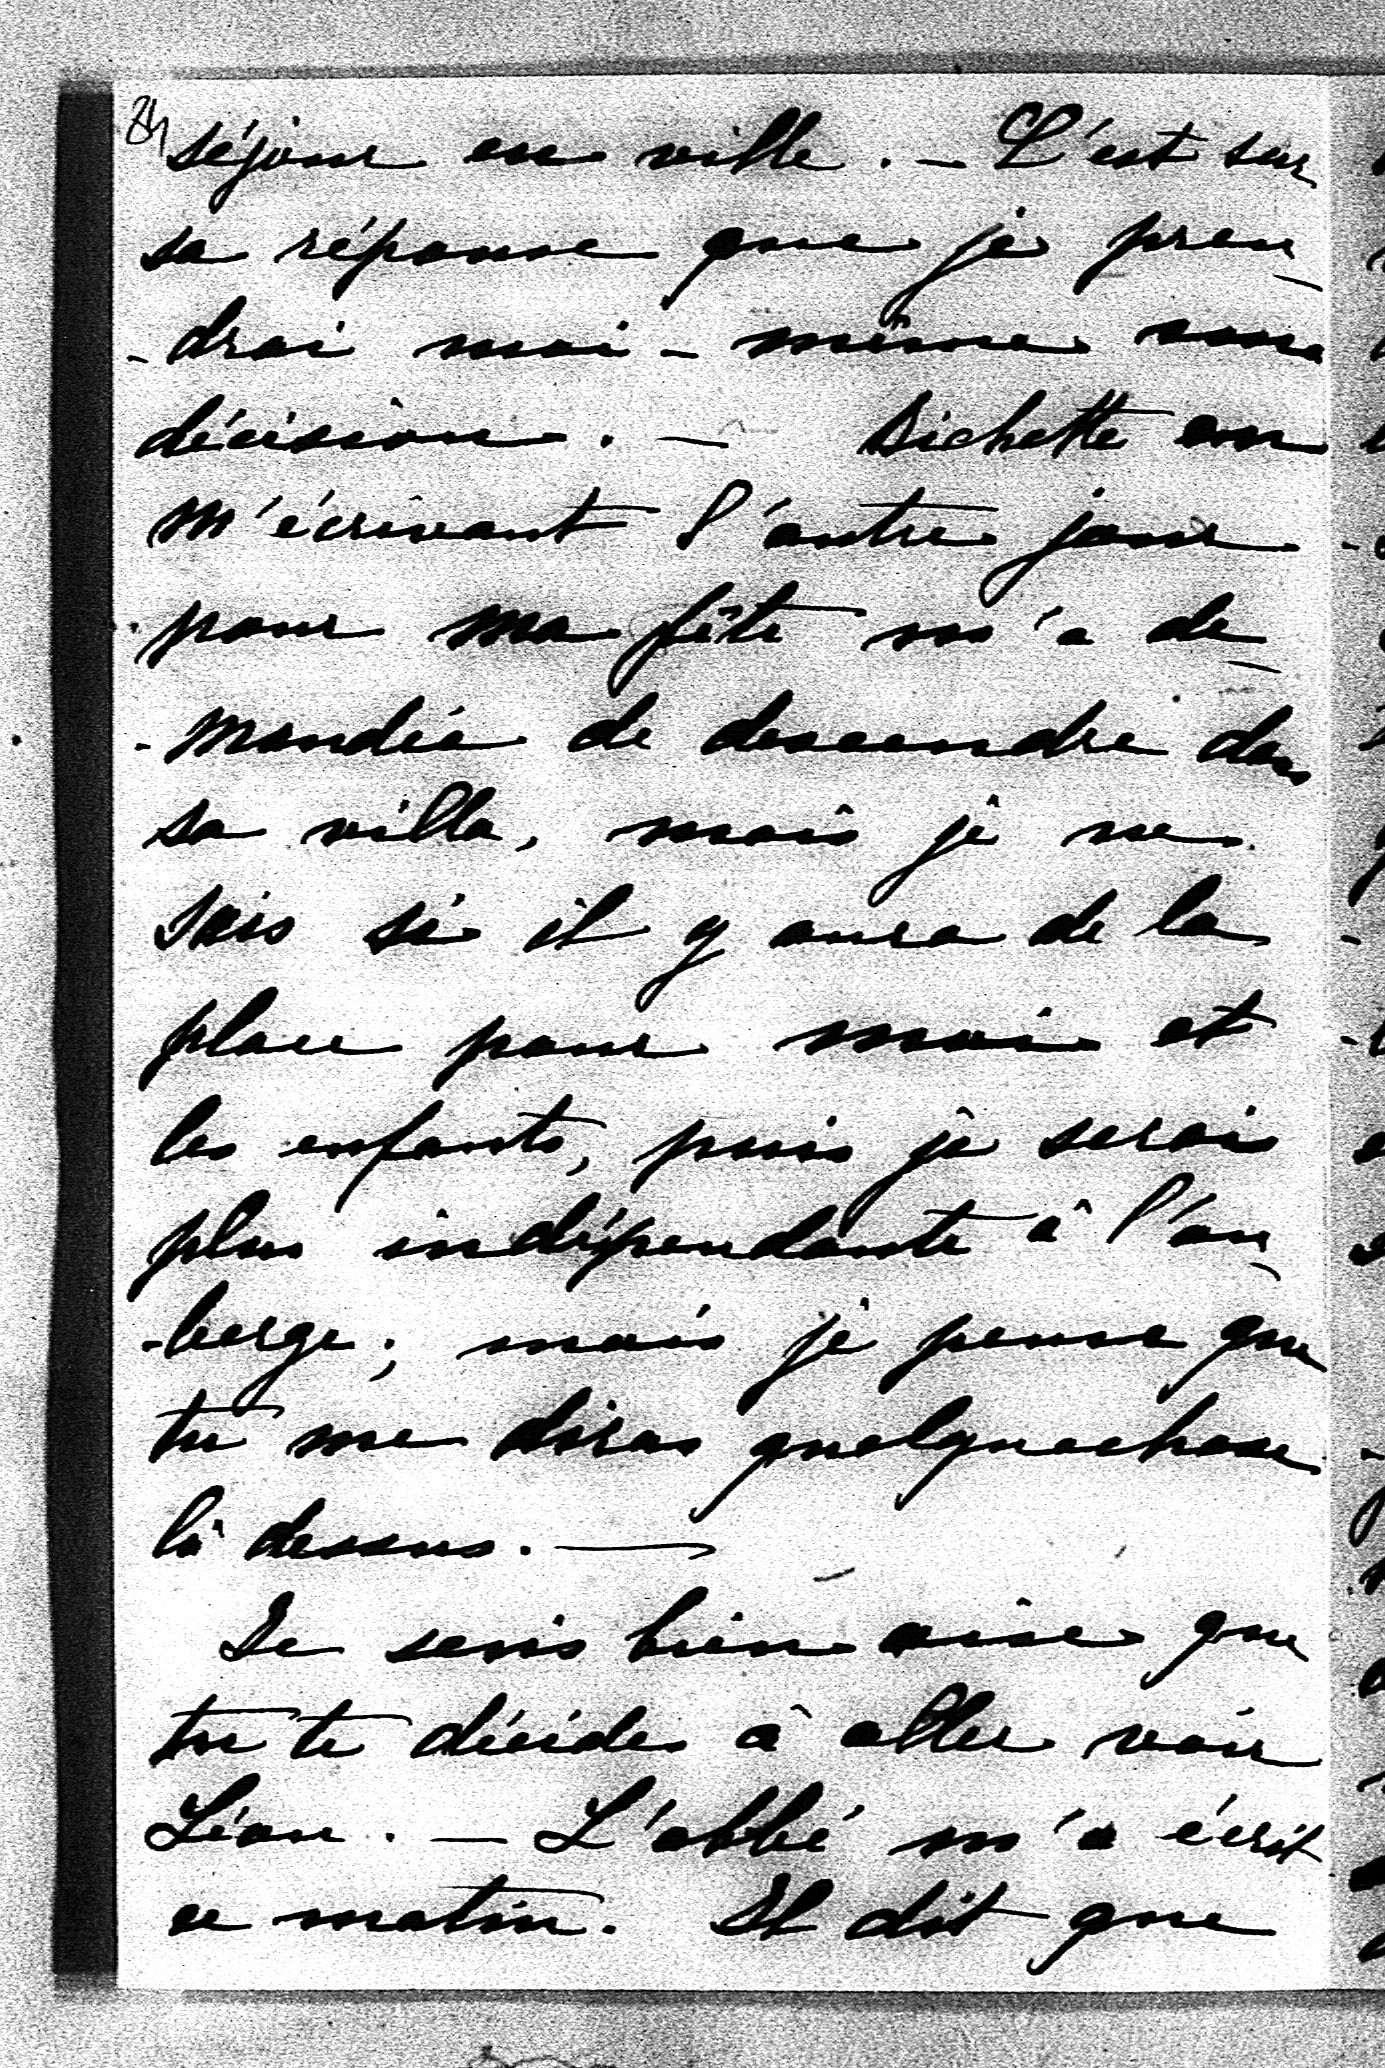 84
séjour en ville. — C'est sur
sa réponse que je pren
- drai moi - même une
décision. — Bichette en
m'écrivant l'autre jour
pour ma fête m'a de
- mandée de descendre dans
sa villa, mais je ne
sais si il y aura de la
place pour moi et
les enfants, puis je serais
plus indépendante à l'au
- berge; mais je pense que
tu me diras quelquechose
là dessus. —
Je serais bien aise que
tu te décides à aller voir
Léon. — L'abbé m'a écrit
ce matin. Il dit que